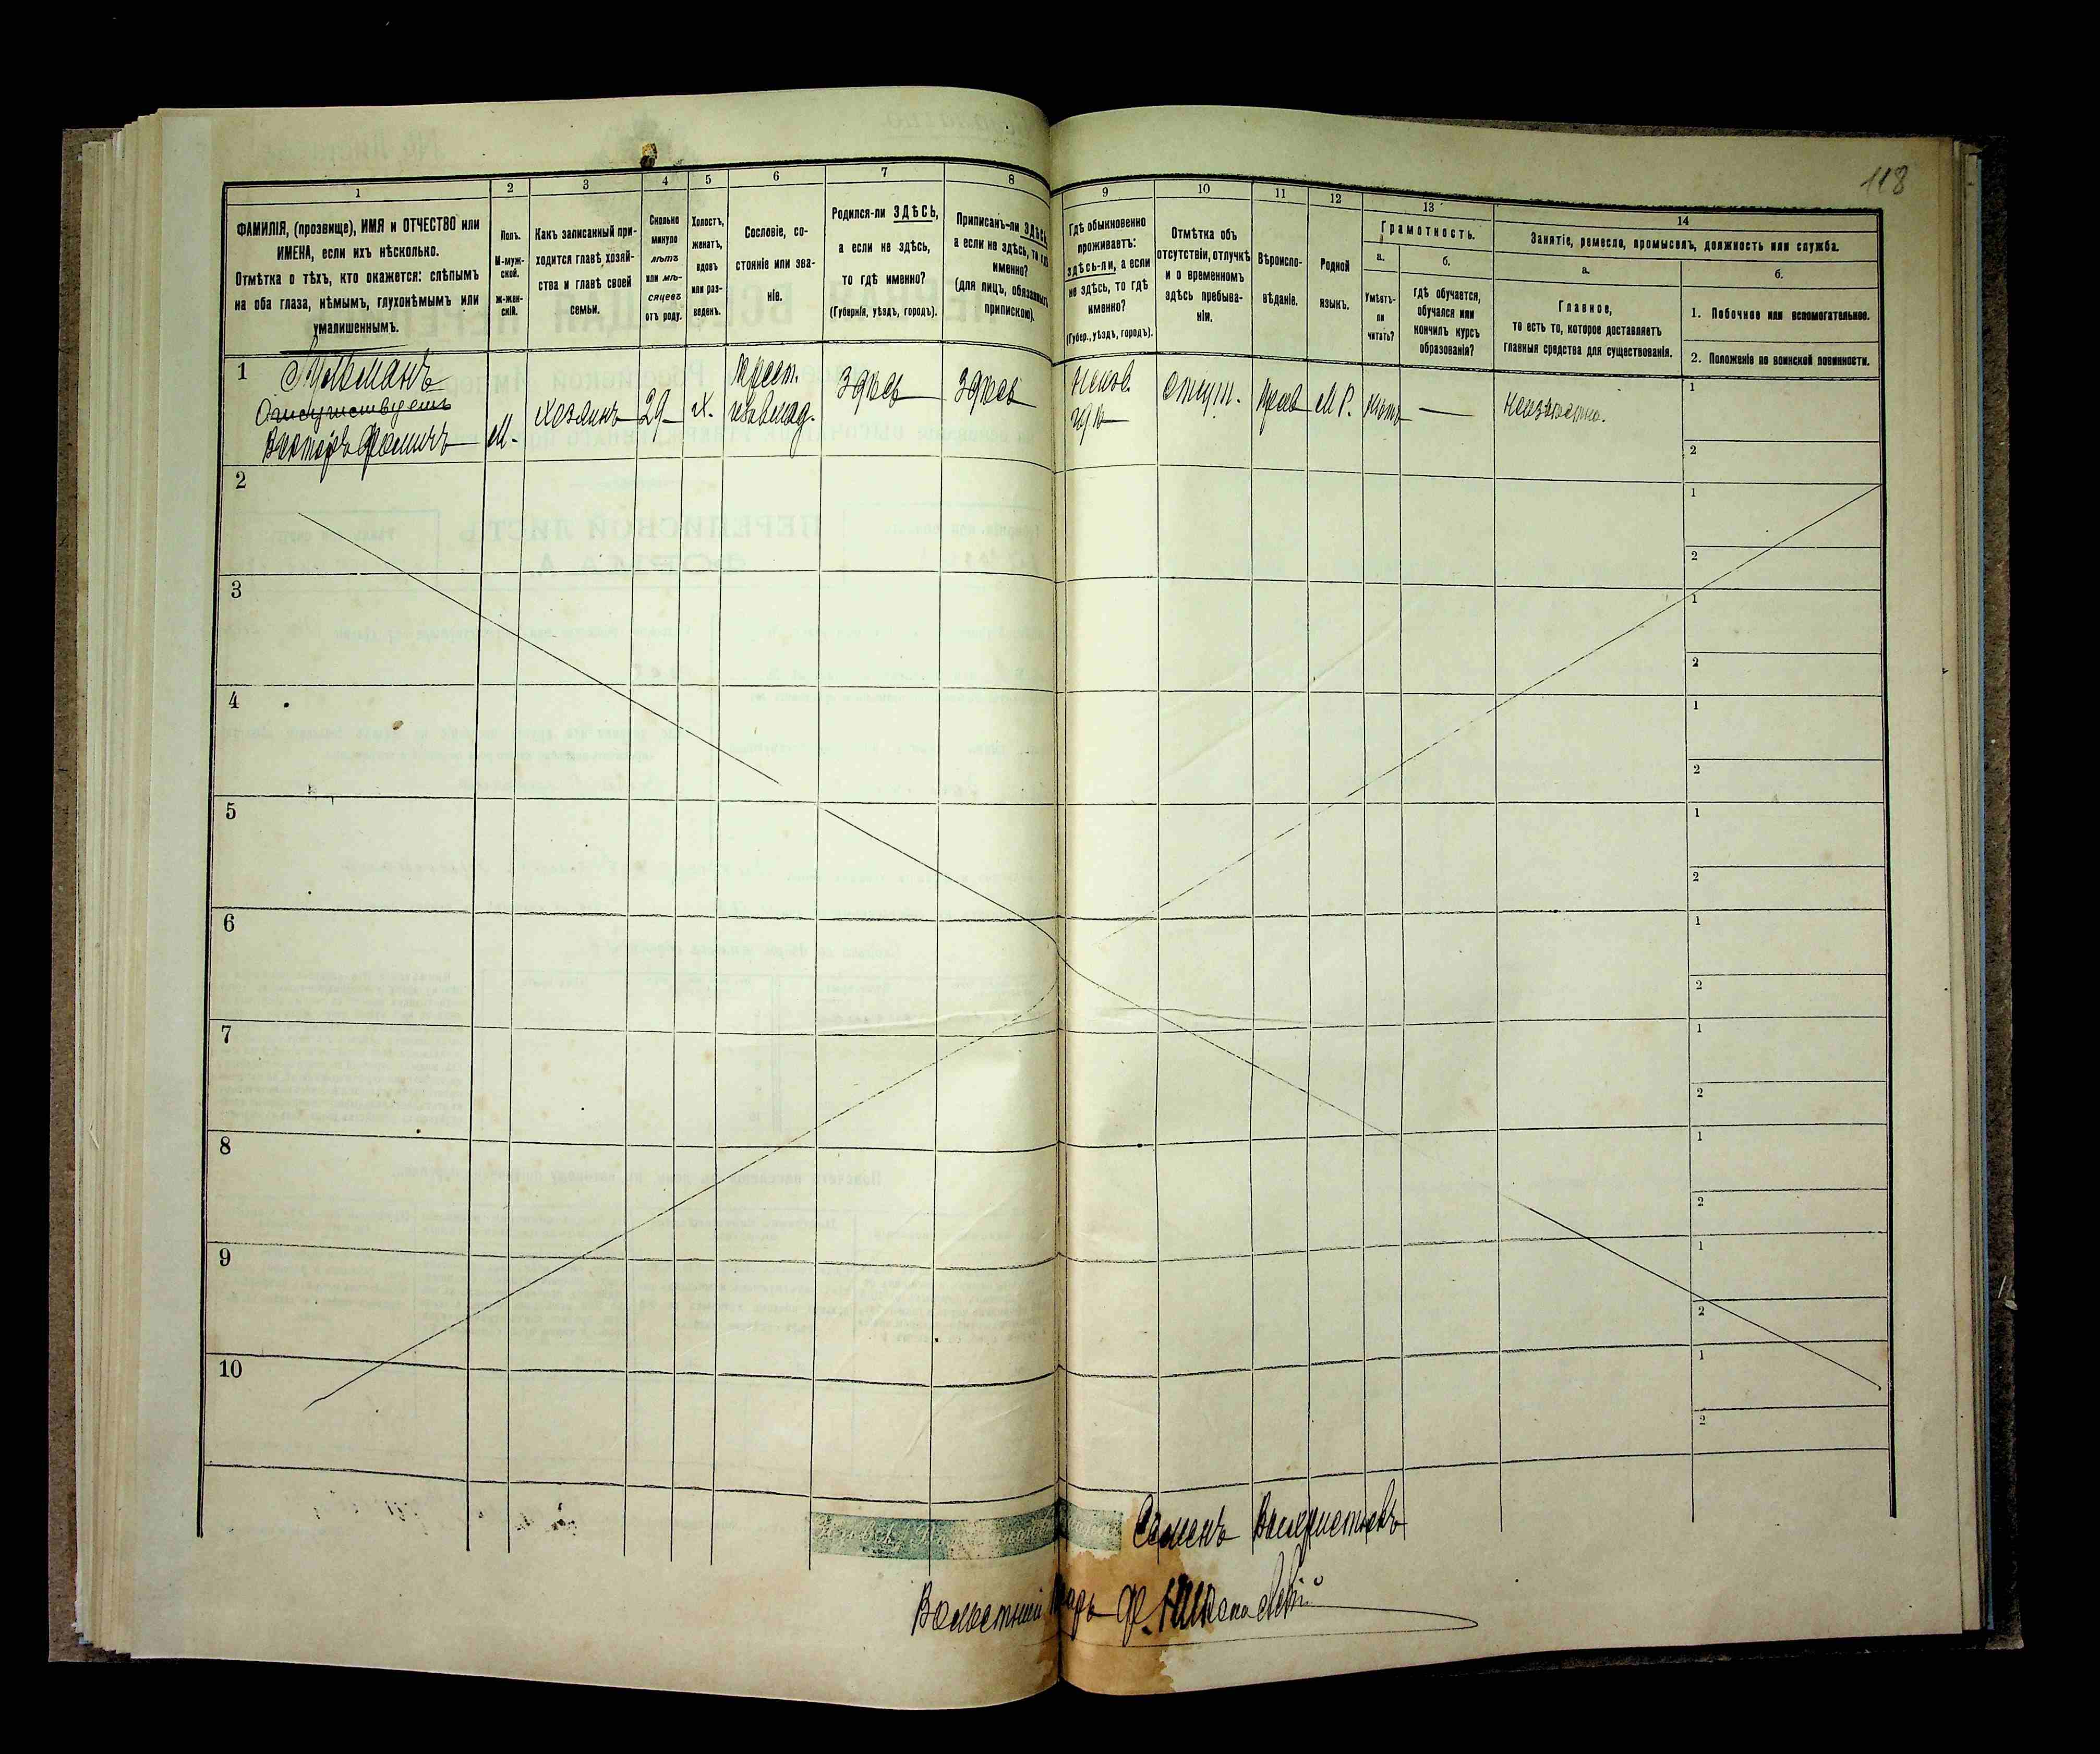 118
1
2
3
4
5
6
7
8
9
10
11
12
13
14
ФАМИЛІЯ, (прозвище), ИМЯ и ОТЧЕСТВО или
ИМЕНА, если ихъ нѣсколько.
Отмѣтка о тѣхъ, кто окажется: слѣпымъ
на оба глаза, нѣмымъ, глухонѣмымъ или
умалишеннымъ.
Полъ.
М-муж-
ской.
Ж-жен-
скій.
Какъ записанный при-
ходится главѣ хозяй-
ства и главѣ своей
семьи.
Сколько
минуло
лѣтъ
или мѣ-
сяцевъ
отъ роду.
Холостъ,
женатъ,
вдовъ
или раз-
веденъ.
Сословіе, со-
стояніе или зва-
ніе.
Родился-ли ЗДѢСЬ,
а если не здѣсь,
то гдѣ именно?
(Губернія, уѣздъ, городъ).
Приписанъ-ли ЗДѢСЬ,
а если не здѣсь, то гдѣ
именно?
(для лицъ, обязанныхъ
припискою).
Гдѣ обыкновенно
проживаетъ:
здѣсь-ли, а если
не здѣсь, то гдѣ
именно?
(Губер., уѣздъ, городъ).
Отмѣтка объ
отсутствіи, отлучкѣ
и о временномъ
здѣсь пребыва-
ніи.
Вѣроиспо-
вѣданіе.
Родной
языкъ.
Грамотность.
а.
Умѣетъ-
ли
читать?
б.
гдѣ обучается,
обучался или
кончилъ курсъ
образованія?
Занятіе, ремесло, промыселъ, должность или служба.
а.
Главное,
то есть то, которое доставляетъ
главныя средства для существованія.
б.
1. Побочное или вспомогательное.
2. Положеніе по воинской повинности.
1
Отсутствуетъ
Викторъ
М.
хозяинъ
29
Х.
Крест.
Здѣсь
Здѣсь
отсут.
М Р.
Нѣтъ
—
неизвѣстно.
1
2
2
1
2
3
1
2
4
1
2
5
1
2
6
1
2
7
1
2
8
1
2
9
1
2
10
1
2
Семенъ
Волостный